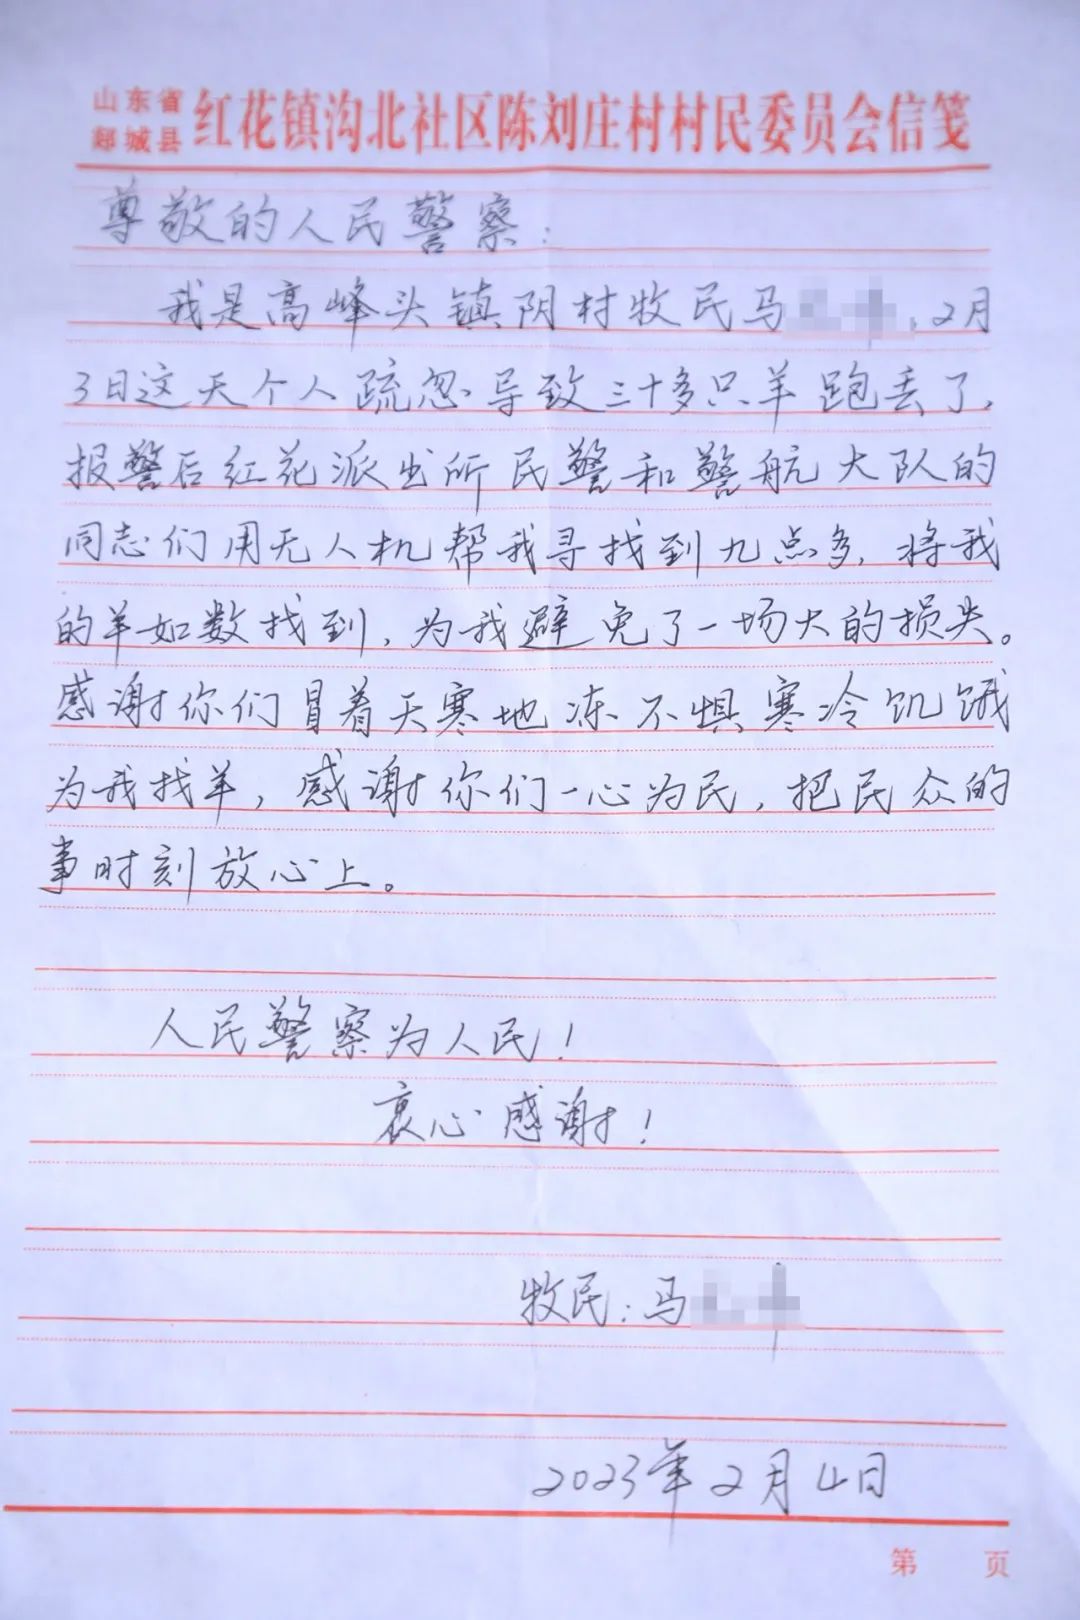 山东省
郯城县 红花镇沟北社区陈刘庄村村民委员会信笺
尊敬的人民警察：
我是高峰头镇阴村牧民马 ，2月
3日这天个人疏忽导致三十多只羊跑丢了，
报警后红花派出所民警和警航大队的
同志们用无人机帮我寻找到九点多，将我
的羊如数找到，为我避免了一场大的损失。
感谢你们冒着天寒地冻不惧寒冷饥饿
为我找羊，感谢你们一心为民，把民众的
事时刻放心上。
人民警察为人民！
衷心感谢！
牧民：马
2023年2月4日
第 页